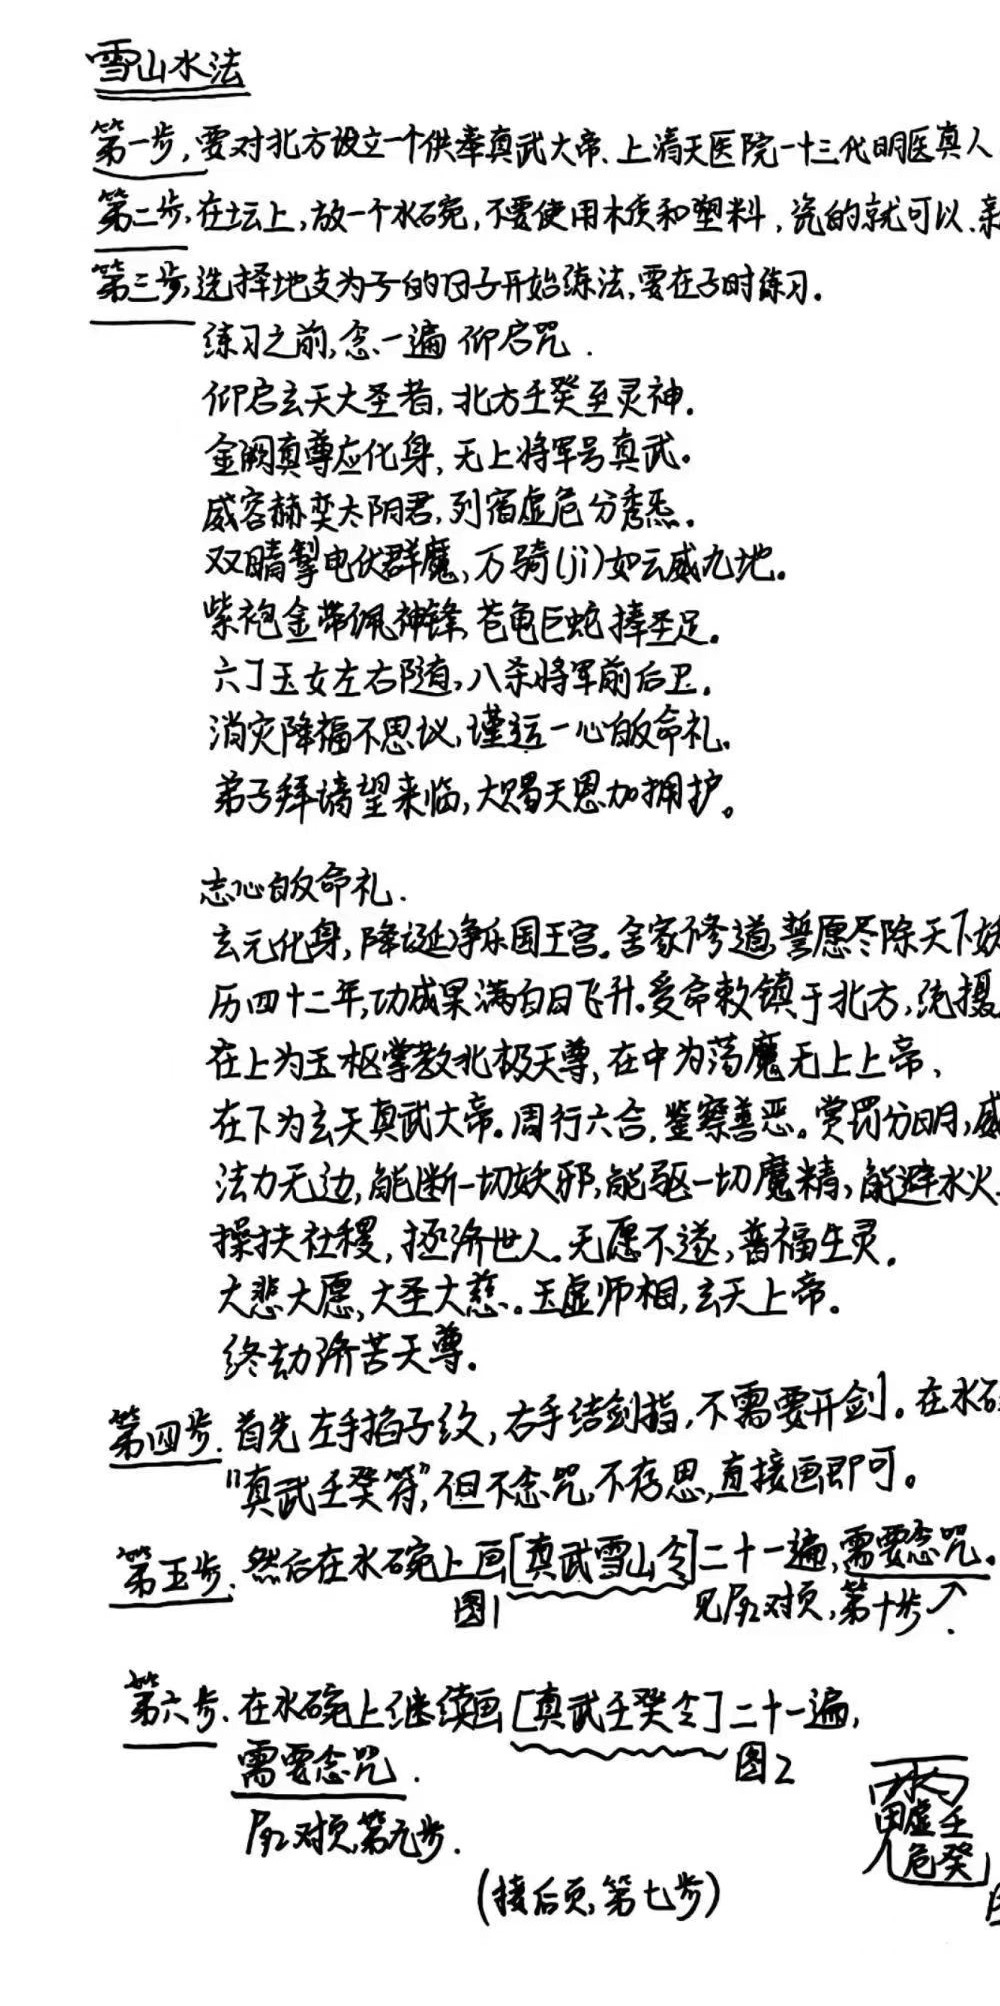 雪山水法
第一步,要对北方设立一个供奉真武大帝、上清天医院一十三代明医真人
第二步,在坛上,放一个水碗,不要使用木质和塑料,瓷的就可以.亲
第三步,选择地支为子的日子开始练法,要在子时练习.
练习之前,念一遍 仰启咒.
仰启玄天大圣者,北方壬癸至灵神.
金阙真尊应化身,无上将军号真武.
威容赫奕太阴君,列宿虚危分秀炁.
双睛掣电伏群魔,万骑(jì)如云威九地.
紫袍金带佩神锋,苍龟巨蛇捧圣足.
六丁玉女左右随,八杀将军前后卫.
消灾降福不思议,谨运一心皈命礼.
弟子拜请望来临,大赐天恩加拥护。
志心皈命礼.
玄元化身,降诞净乐国王宫.舍家修道,誓愿尽除天下妖
历四十二年,功成果满白日飞升.受命敕镇于北方,统摄
在上为玉枢掌教北极天尊,在中为荡魔无上上帝、
在下为玄天真武大帝。周行六合,鉴察善恶。赏罚分明,威
法力无边,能断一切妖邪,能驱一切魔精,能避水火
操扶社稷,拯济世人.无愿不遂,普福生灵.
大悲大愿,大圣大慈.玉虚师相,玄天上帝.
终劫济苦天尊.
第四步.首先左手掐子纹,右手结剑指,不需要开剑。在水碗
"真武壬癸符",但不念咒,不存思,直接画即可。
第五步.然后在水碗上画[真武雪山令]二十一遍,需要念咒。
图1 见 对页,第十步
第六步.在水碗上继续画[真武壬癸令]二十一遍,
需要念咒. 图2
对页,第九步.
(接后页,第七步)
水
田虚壬
危癸